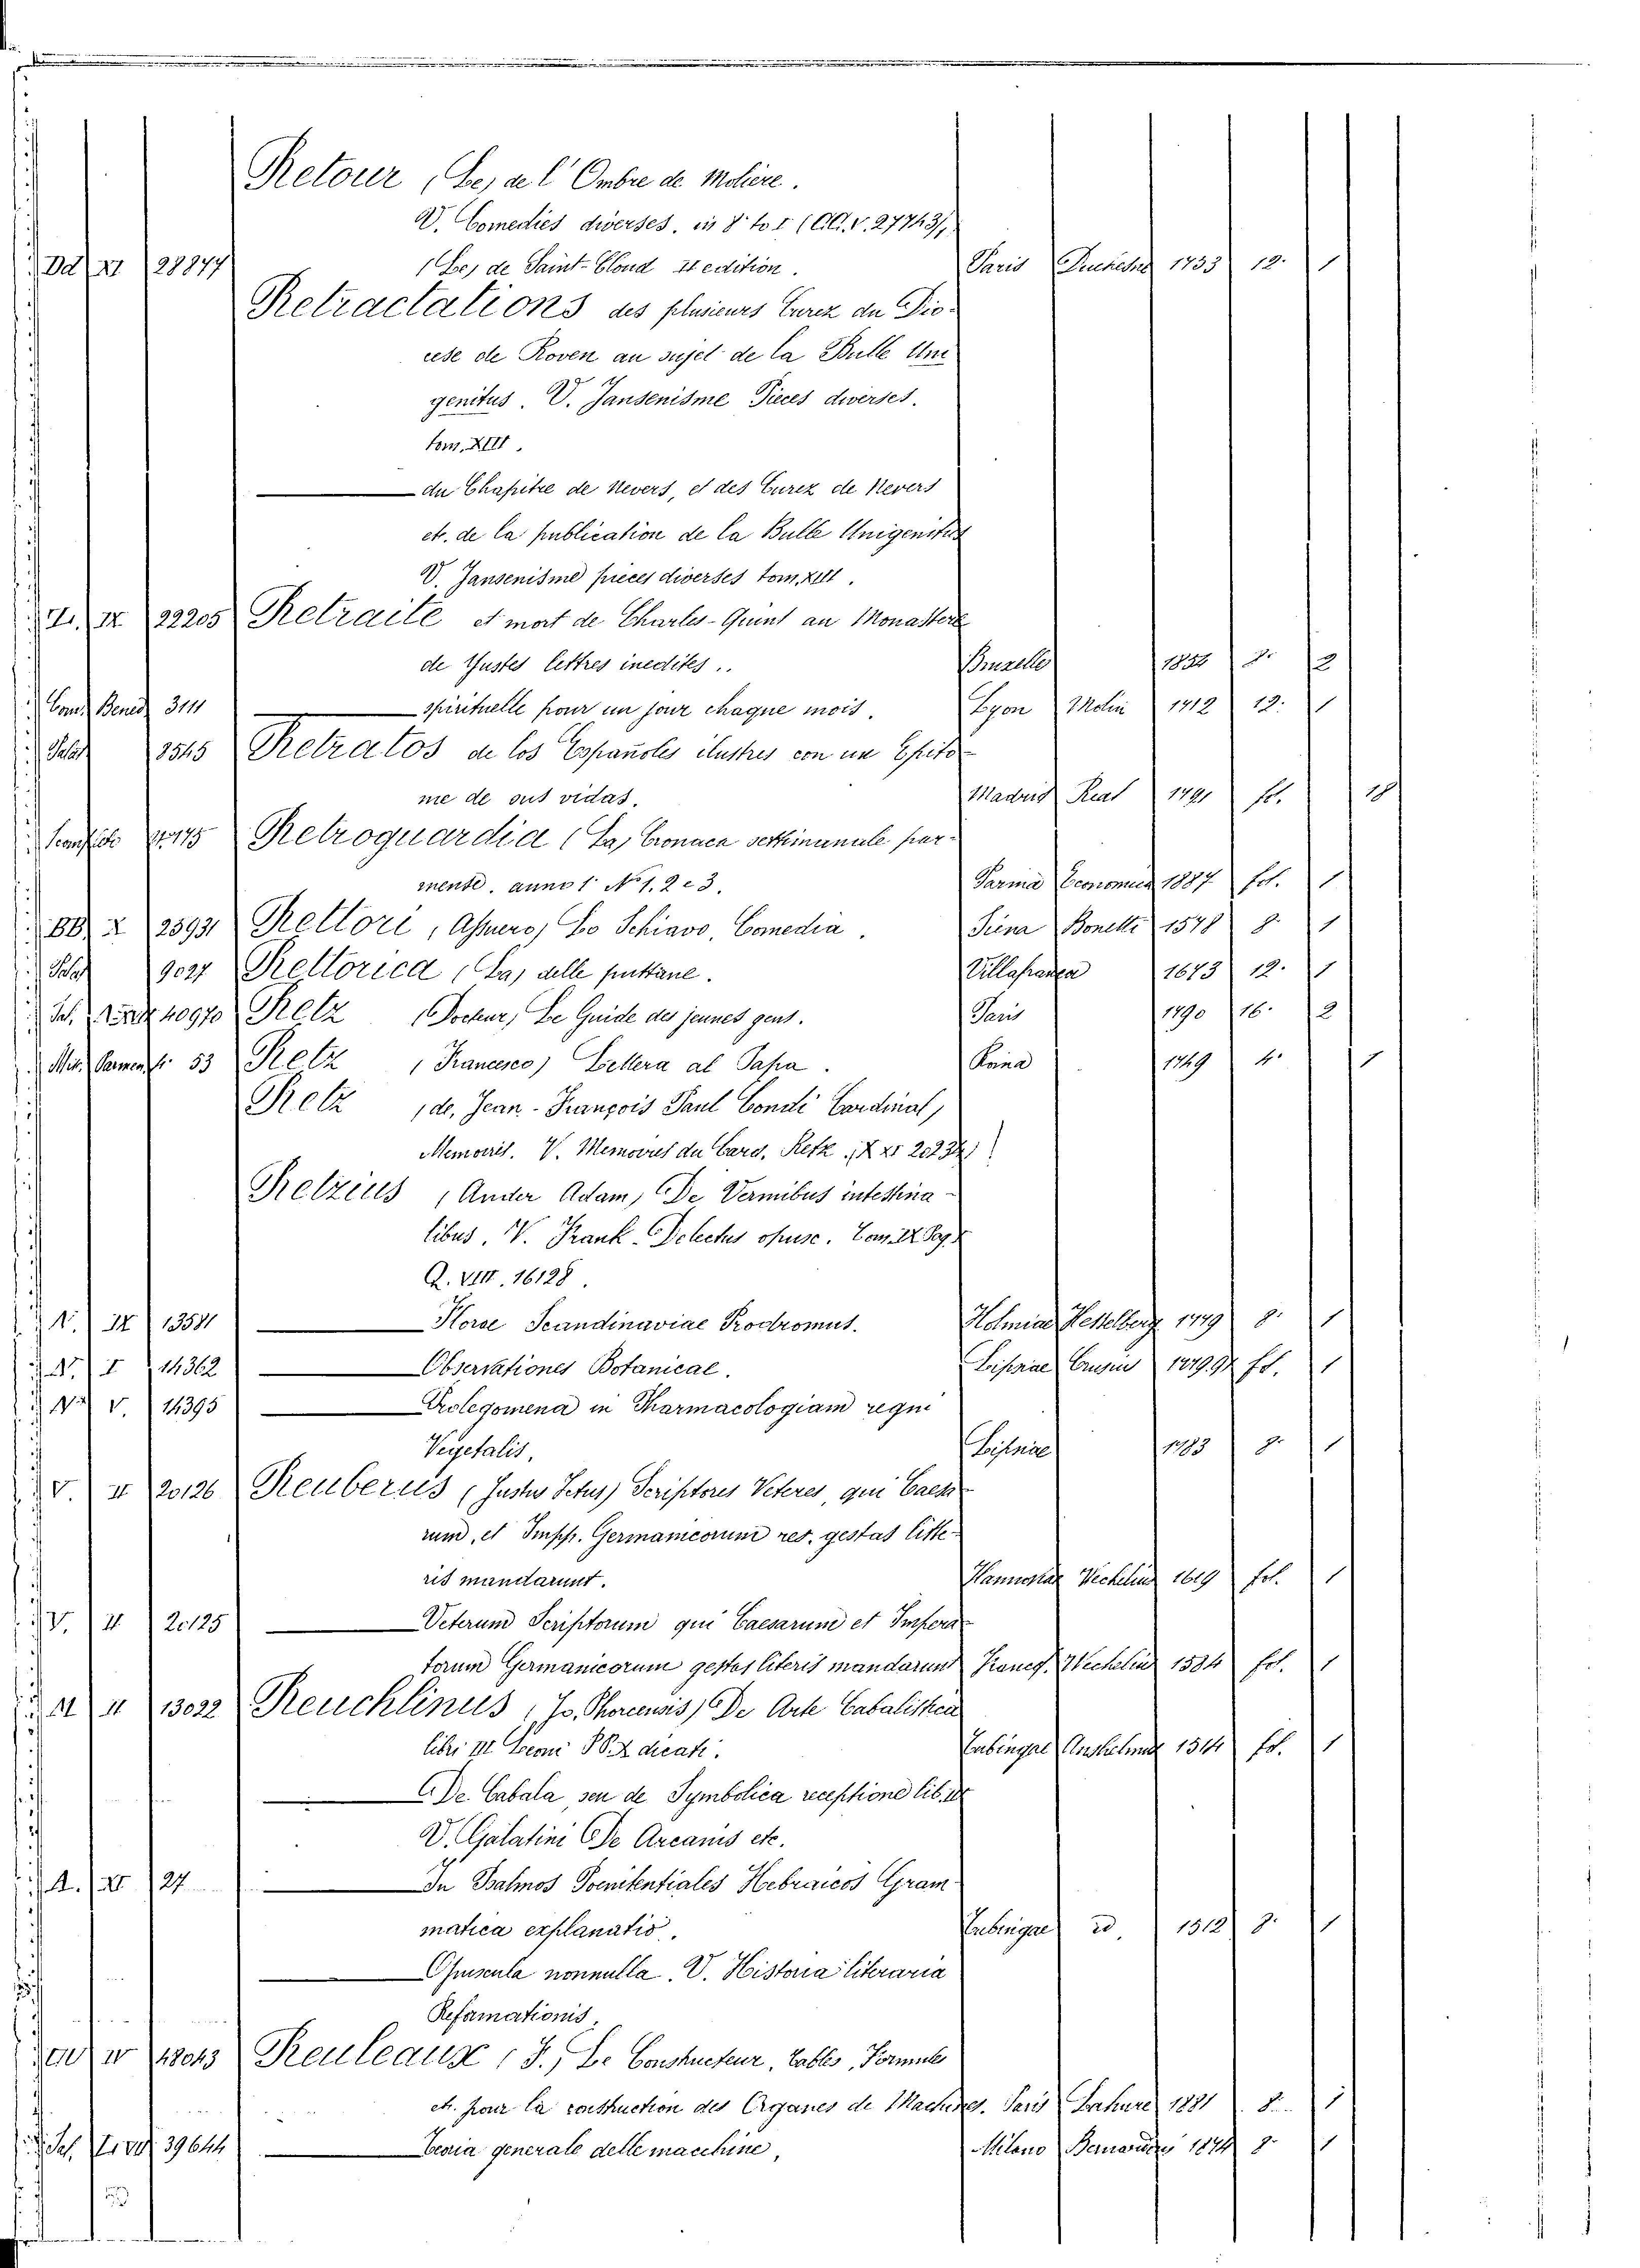 Retour (Le) de l'Ombre de Moliere.
V. Comedies diverses. in 8° to I (CC. V. 27743)
Dd XI 28877 (Le) de Saint-Cloud II edition. Paris Duchesne 1753 12. 1
Retractations des plusieurs Curez du Dio-
cese de Roven au sujet de la Bulle Uni
genitus. V. Jansenisme Pieces diverses.
tom. XIII.
— du Chapitre de Nevers, et des Curez de Nevers
et. de la publication de la Bulle Unigenitus
V. Jansenisme pieces diverses tom. XIII.
IX 22205 Retraite et mort de Charles-Quint au Monastere
de Yustes lettres inedites.. Bruxelles 1854 8. 2
Com. Bened. 3111 — spirituelle pour un jour chaque mois. Lyon Molin 1712 12. 1
Palat 3545 Retratos de los Españoles ilustres con un Epito-
me de sus vidas. Madrid Real 1791 fl. 18
Retroguardia (La) Cronaca setthimanale par-
mense. anno 1° N° 1. 2 e 3. Parma Economica 1887 fol. 1
BB X 25931 Rettori (Asuero) Lo Schiavo, Comedia. Siena Bonetti 1578 8. 1
Palat 9027 Rettorica (La) delle puttane. Villafranca 1673 12. 1
40970 Retz (Docteur) Le Guide des jeunes gens. Paris 1790 16. 2
Mis. Parmen. fr. 53 Retz (Francesco) Lettera al Papa. Roma 1749 4. 1
Retz (de, Jean-François Paul Condi Cardinal)
Memoires. V. Memoires du Card. Retz (X XI 20232)
Retzius (Ander Adam) De Vermibus intestina-
libus. V. Frank - Delectus opusc. Tom. IX Pag.
Q. VIII. 16128.
N. IX 13581 — Florae Scandinaviae Prodromus. Holmiae Hesselberg 1779 8. 1
N. I 14362 — Observationes Botanicae. Lipsiae Crusius 1779.91 fol. 1
N. V. 14395 — Prolegomena in Pharmacologiam regni
Vegetalis. Lipsiae 1783 8. 1
V. II 20126 Reuberus (Justus Jctus) Scriptores Veteres, qui Caesa
rum, et Impp. Germanicorum res. gestas litte-
ris mandarunt. Hannoviae Wechelius 1619 fol. 1
V. II 20125 — Veterum Scriptorum qui Caesarum et Impera-
torum Germanicorum gestas literis mandarunt Francf. Wechelius 1584 fol. 1
II 13022 Reuchlinus (Jo. Phorcensis) De Arte Cabalistica
libri III Leoni PP. X dicati. Tubingae Anshelmus 1514 fol. 1
— De Cabala, seu de Symbolica receptione lib. III
V. Galatini De Arcanis etc.
A. 27 — In Psalmos Poenitentiales Hebraicos Gram-
matica explanatio. Tubingae id. 1512 8. 1
— Opuscula nonnulla. V. Historia literaria
Reformationis.
IV 48043 Reuleaux (F.) Le Constructeur, tables, Formules
et. pour la construction des Organes de Machines. Paris Lahure 1881 8. 1
39644 — Teoria generale delle macchine. Milano Bernardoni 1874 8. 1